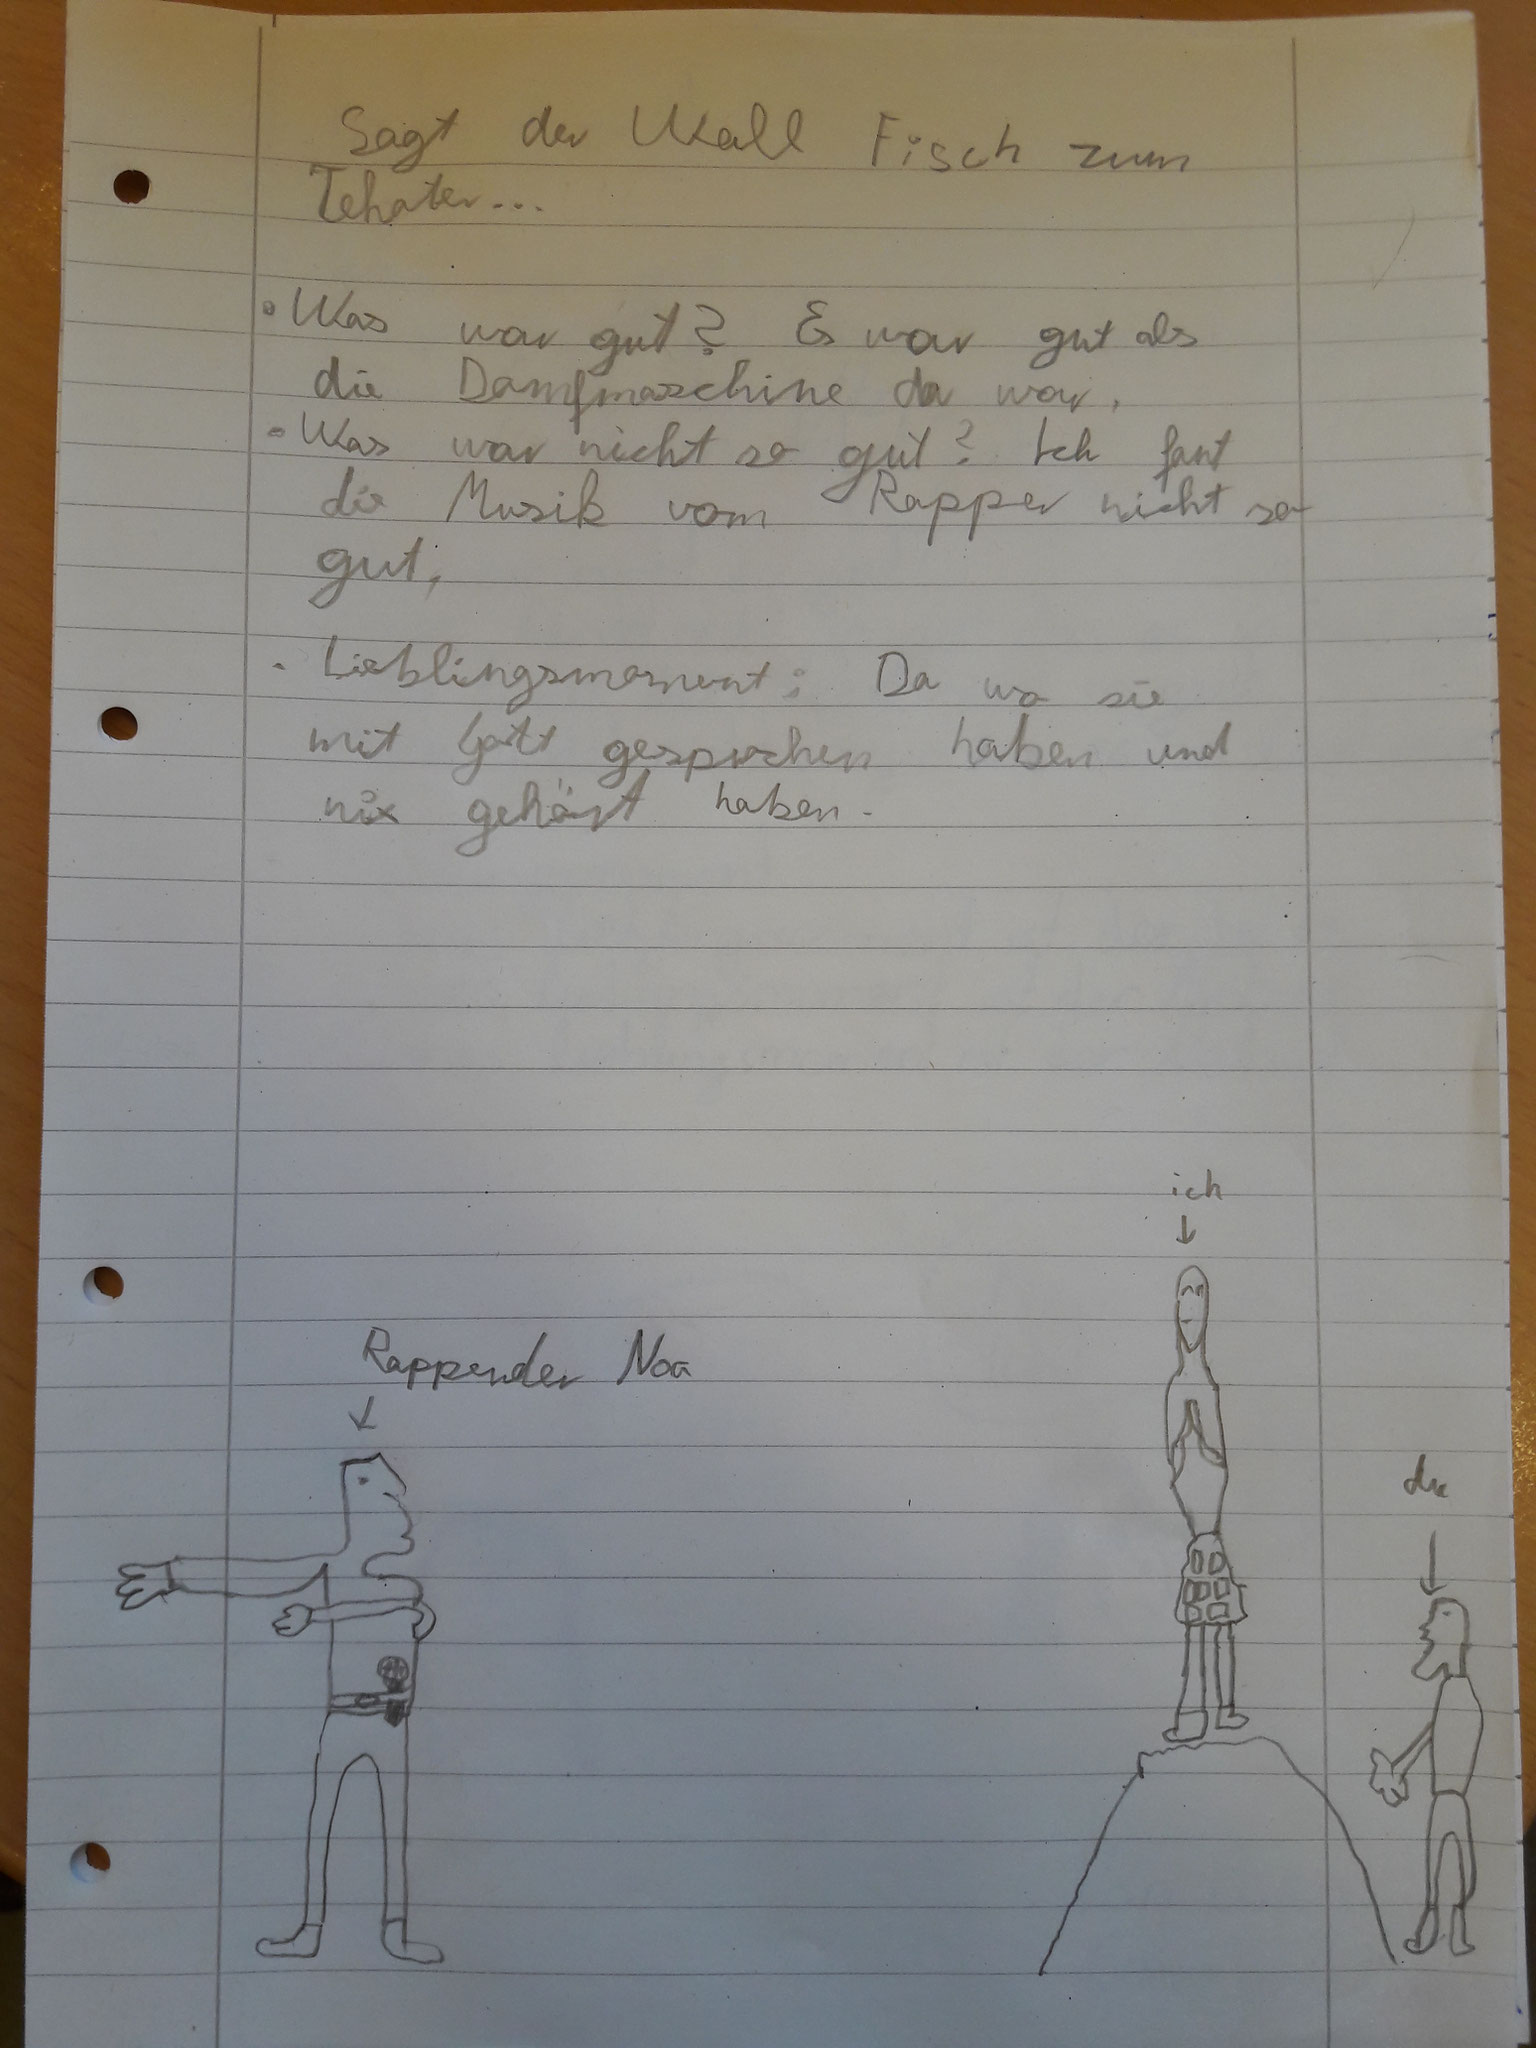 Sagt der Wall Fisch zum
Tehater...
• Was war gut? Es war gut als
die Dampfmaschine da war.
• Was war nicht so gut? Ich fant
die Musik vom Rapper nicht so
gut,
• Lieblingsmoment: Da wo sie
mit Gott gesprochen haben und
nix gehört haben.
ich
Rappender Noa
du